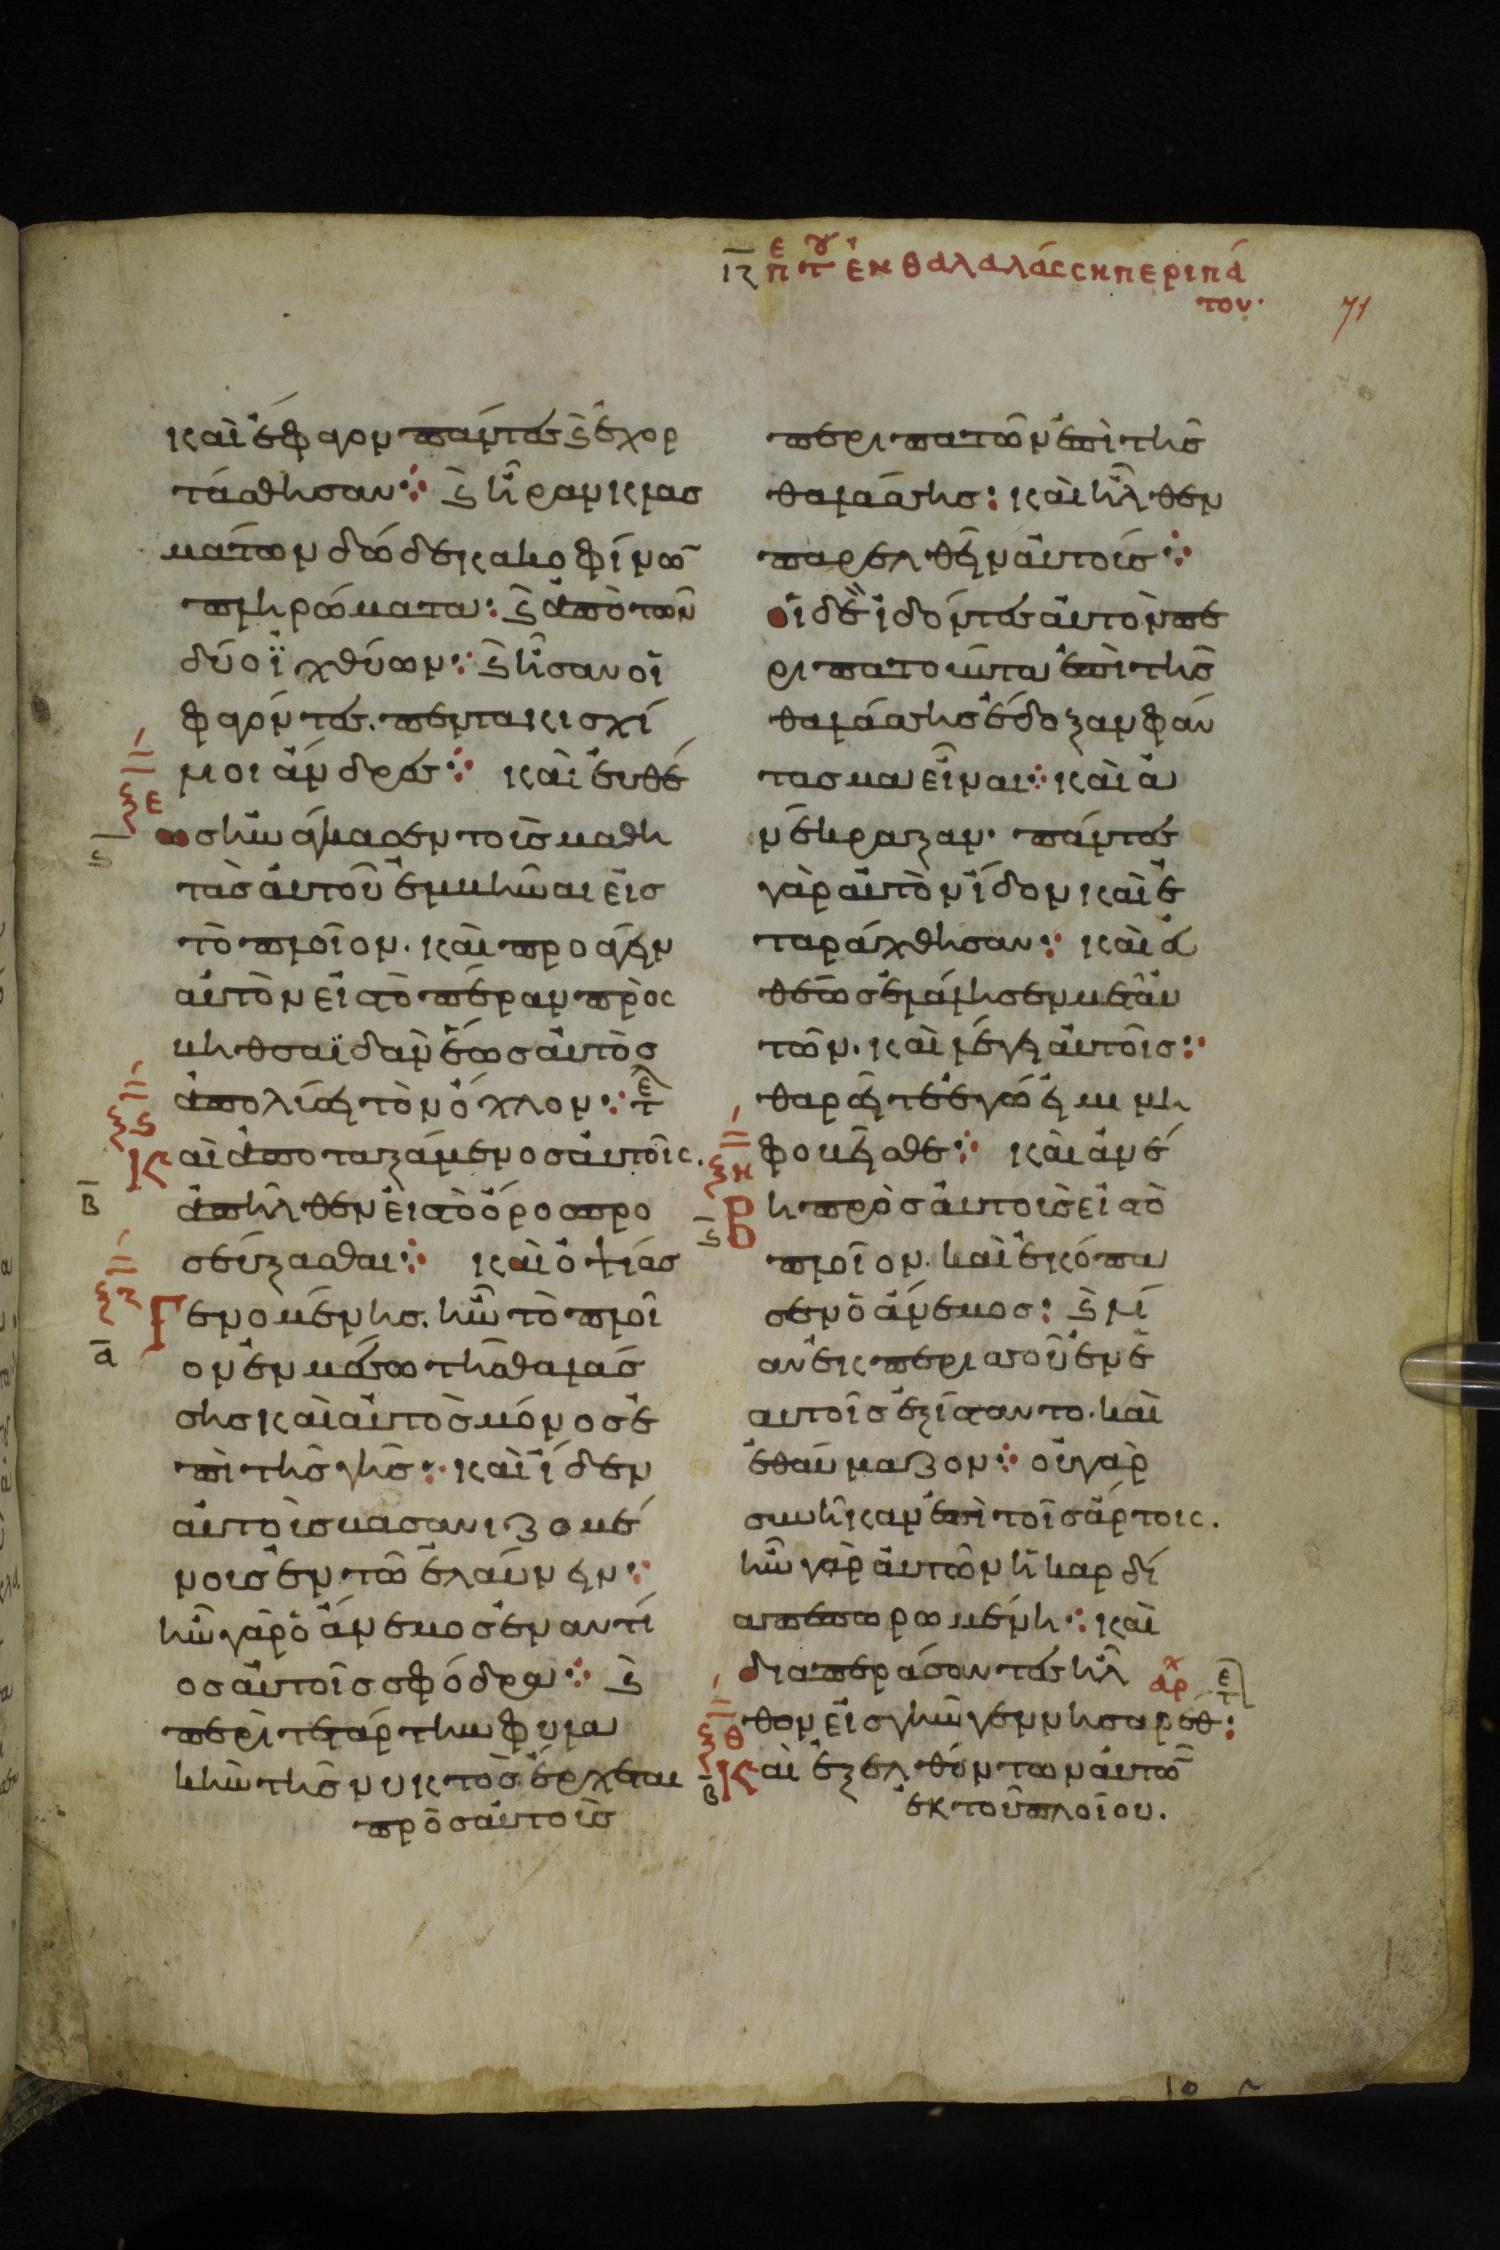 ιζ πε του ἐν θαλαλάσση περιπά
του·
71
καὶ ἔφαγον πάντες ϗ ἐχορ
τάσθησαν· ϗ ἦραν κλασ
μάτων δώδεκα κοφίνω̅
πληρώματα: ϗ ἀπὸ τῶν
δύο ἰχθύων· ϗ ἦσαν οἱ
φαγόντες. πεντακισχί
λιοι ἄνδρες· καὶ εὐθέ
ξε
ς
ως ἠνάγκασεν τοὺς μαθη
τὰς αὐτοῦ ἐμβῆναι εἰς
τὸ πλοῖον. καὶ προάγειν
αὐτὸν εἰς τὸ πέραν πρὸς
βηθσαϊδὰν ἕως αὐτὸς
ἀπολύσει τὸν ὄχλον· τε
ξς
β
Καὶ ἀποταξάμενος αὐτοῖς.
ἀπῆλθεν εἰς τὸ ὄρος προ
σεύξασθαι· καὶ ὀψίας
ξζ
α
Γενομένης. ἦν τὸ πλοῖ
ον ἐν μέσω τῆς θαλάσ
σης καὶ αὐτὸς μόνος ἐ
πὶ τῆς γῆς· καὶ ἴδεν
αὐτοὺς βασανιζομέ
νους ἐν τῶ ἐλαύνειν·
ἦν γὰρ ὁ ἄνεμος ἐναντί
ος αὐτοῖς σφόδρα· ϗ
περὶ τετάρτην φυλα
κὴν τῆς νυκτὸς ἔρχεται
πρὸς αὐτοὺς
περιπατῶν ἐπὶ τῆς
θαλάσσης: καὶ ἤλθεν
παρελθεῖν αὐτούς·
οἱ δὲ ἰδόντες αὐτὸν πε
ριπατοῦντα ἐπὶ τῆς
θαλάσσης ἔδοξαν φάν
τασμα εἶναι· καὶ ἀ
νέκραξαν· πάντες
γὰρ αὐτὸν ἴδον καὶ ἐ
ταράχθησαν· καὶ εὐ
θέως ἐλάλησεν μετ αὐ
τῶν. καὶ λέγει αὐτοῖς·
θαρσεῖτε ἐγώ εἰμι μὴ
φοβεῖσθε· καὶ ἀνέ
ξη
ς
βη πρὸς αὐτοὺς εἰς τὸ
πλοῖον. καὶ ἐκόπα
σεν ὁ ἄνεμος: ϗ λί
αν ἐκ περισσοῦ ἐν ἑ
αυτοῖς ἐξίσταντο. καὶ
ἐθαύμαζον· οὐ γὰρ
συνῆκαν ἐπὶ τοῖς ἄρτοις.
ἦν γὰρ αὐτῶν ἡ καρδί
α πεπωρωμένη· καὶ
διαπεράσαντες ἦλ
αρχ τε
θον εἰς γῆν γεννησαρέθ:
ξθ
β
Καὶ ἐξελθόντων αὐτῶ̅
ἐκ τοῦ πλοίου.